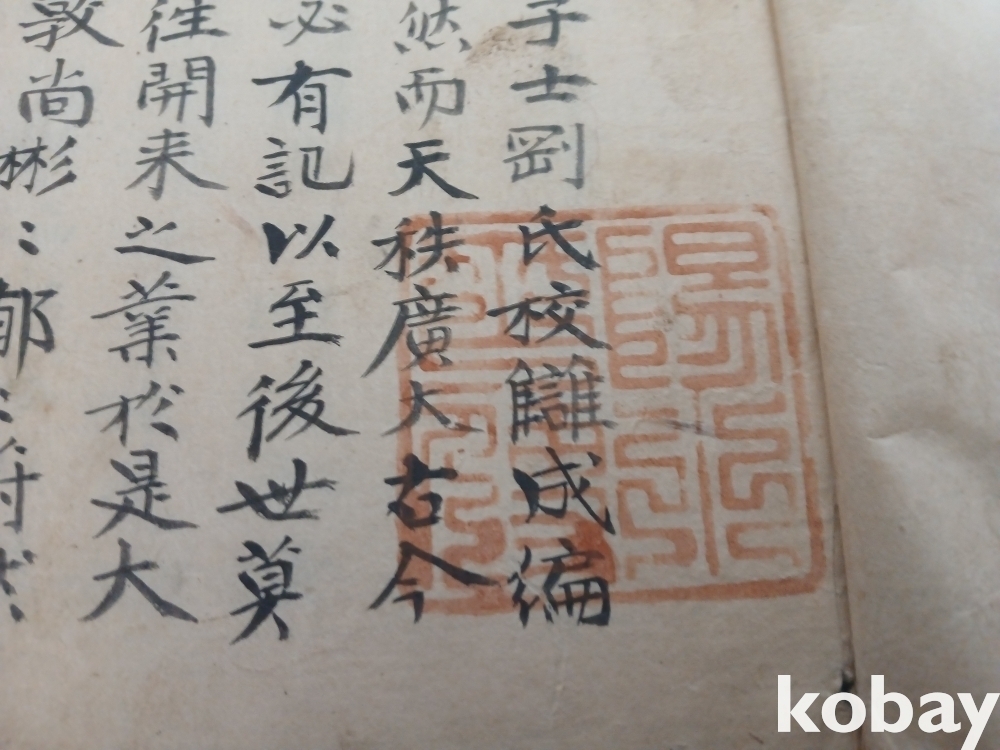 子士剛氏校讎成編
然而天秩廣大右今
必有記以至後世莫
往開来之業於是大
敦尚彬〻郁〻
kobay